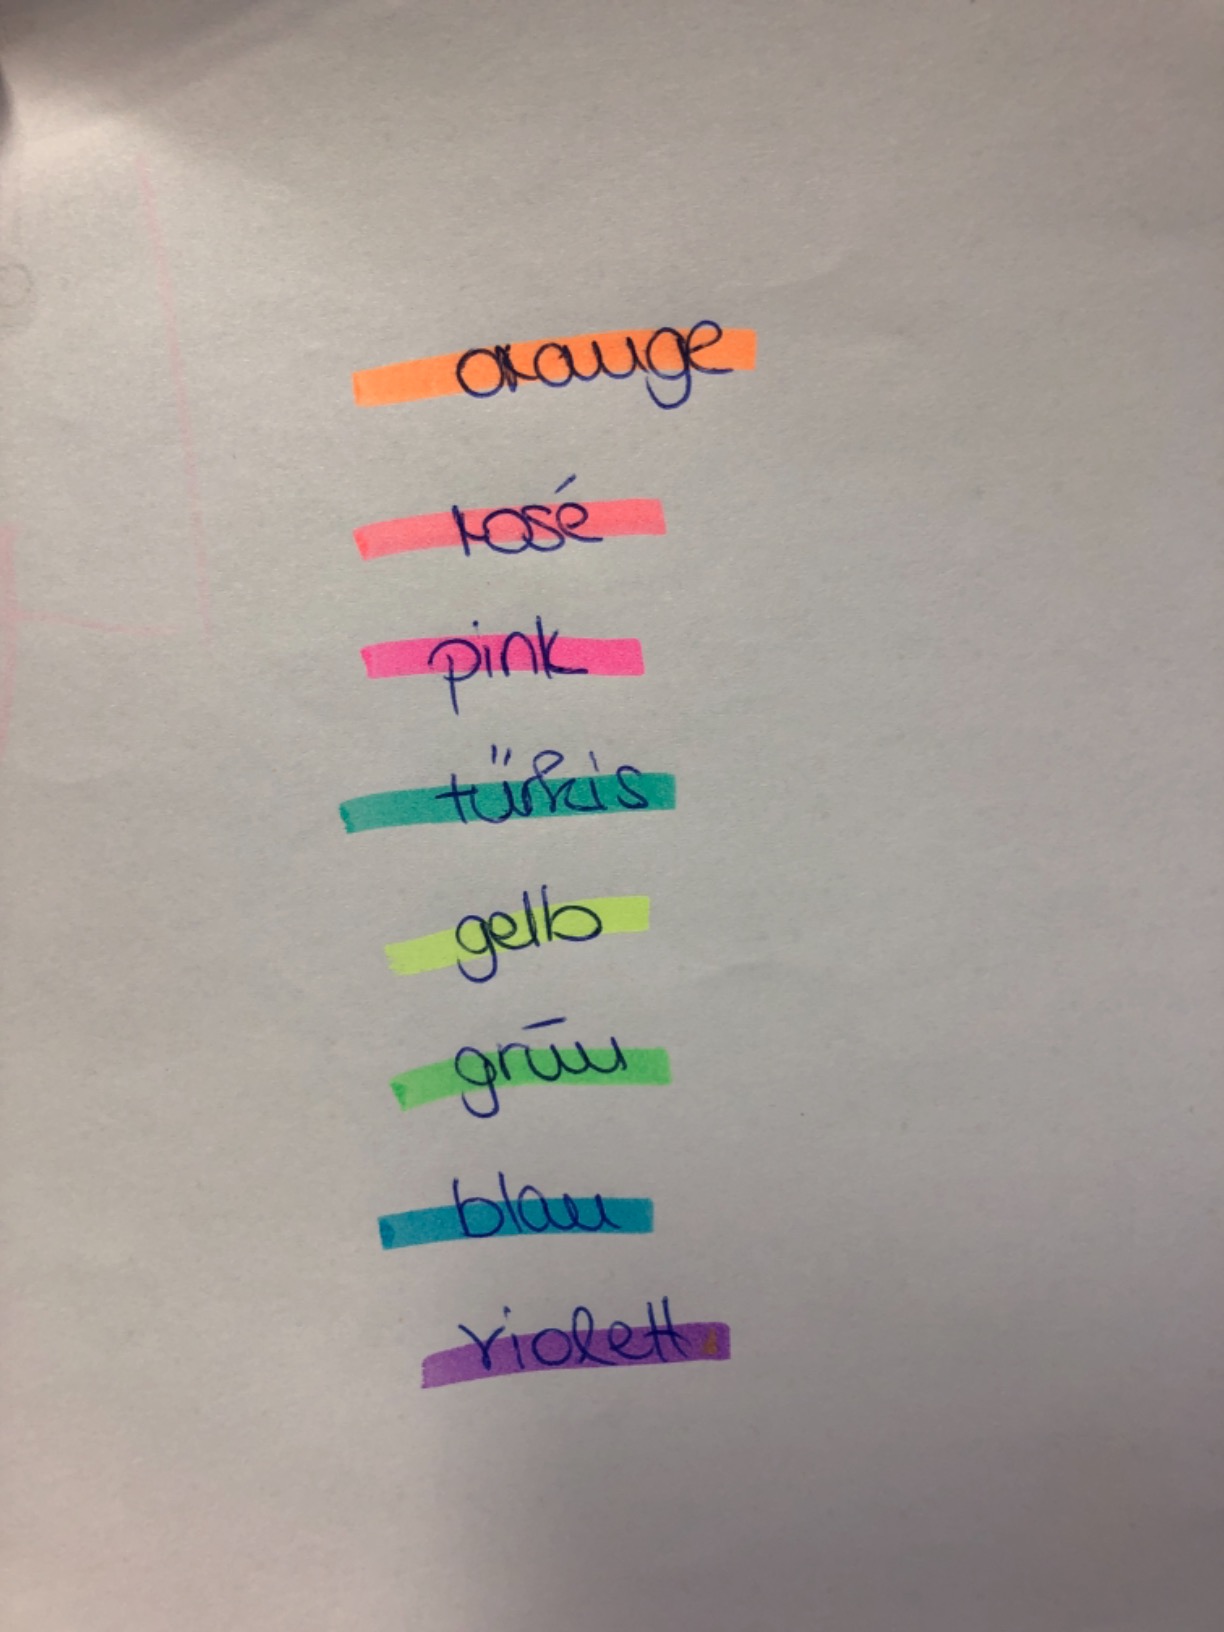 orange
rosé
pink
türkis
gelb
grün
blau
violett